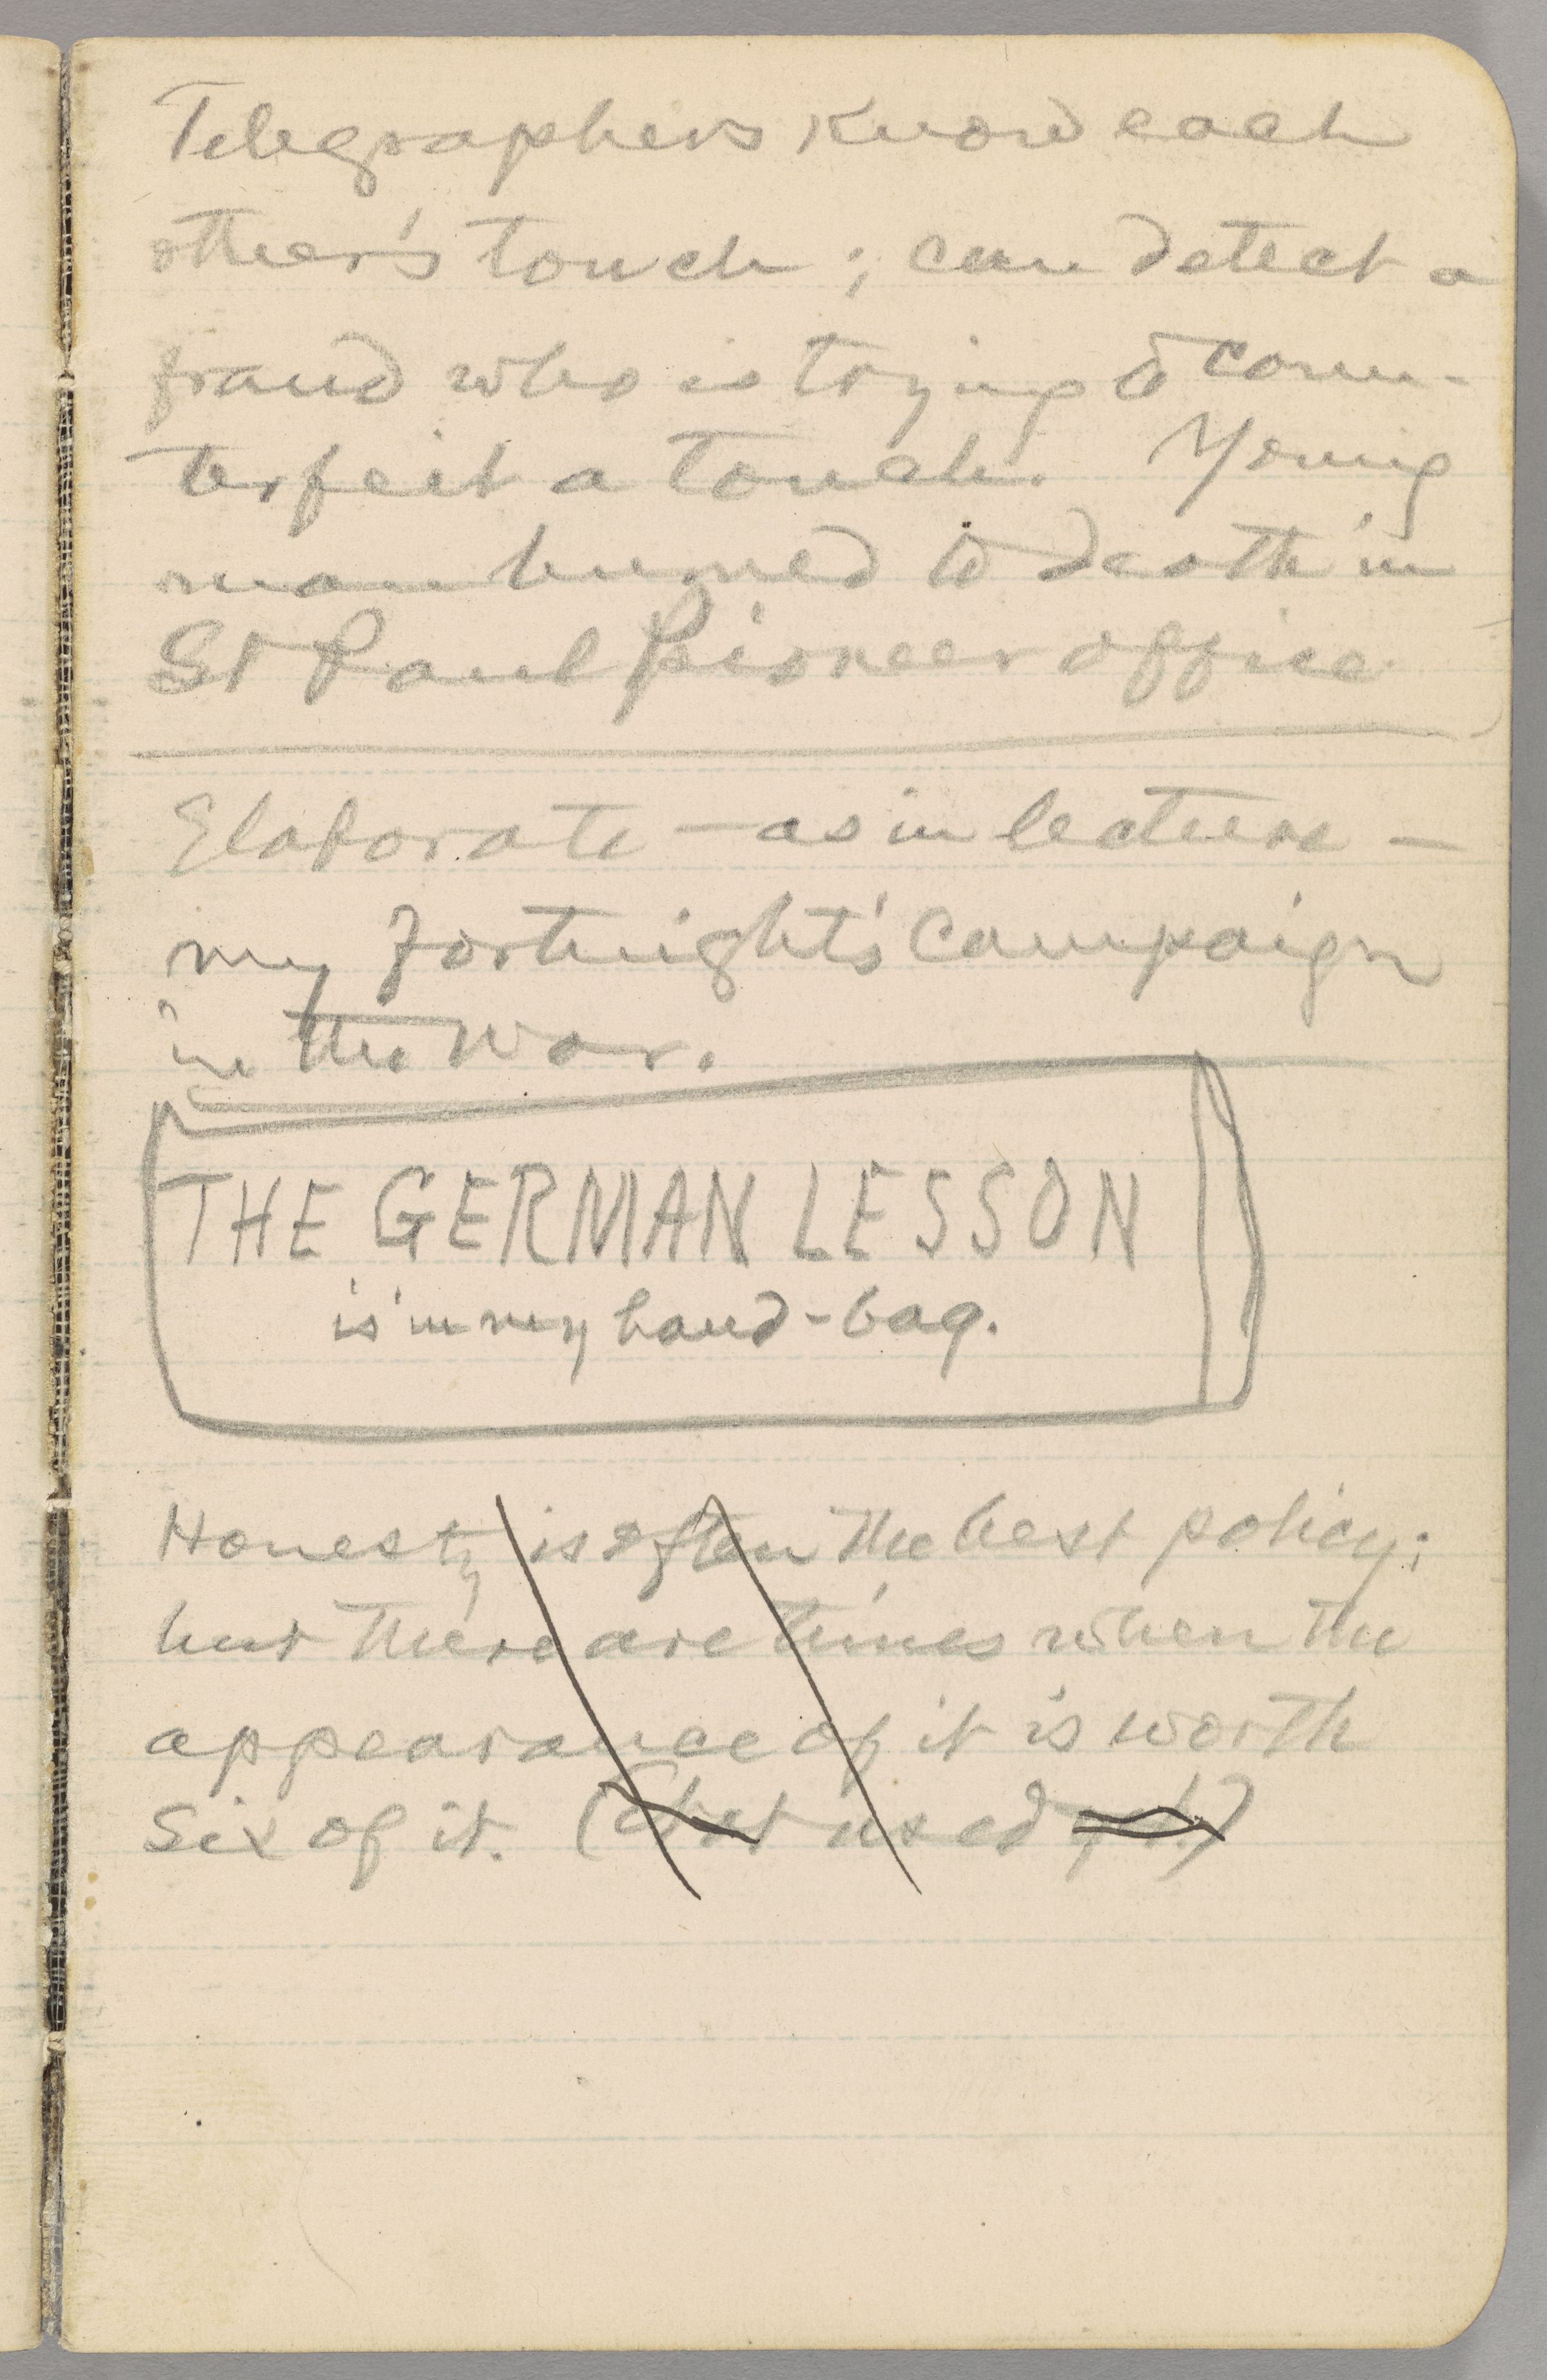 Telegraphers know each
other's touch; can detect a
fraud who is trying to coun-
terfeit a touch. Young
man burned to death in
St Paul Pioneer office
Elaborate — as in lecture —
my fortnight's campaign
in the war.
THE GERMAN LESSON
is in my hand-bag.
Honesty is often the best policy;
but there are times when the
appearance of it is worth
six of it. (Not used yet)